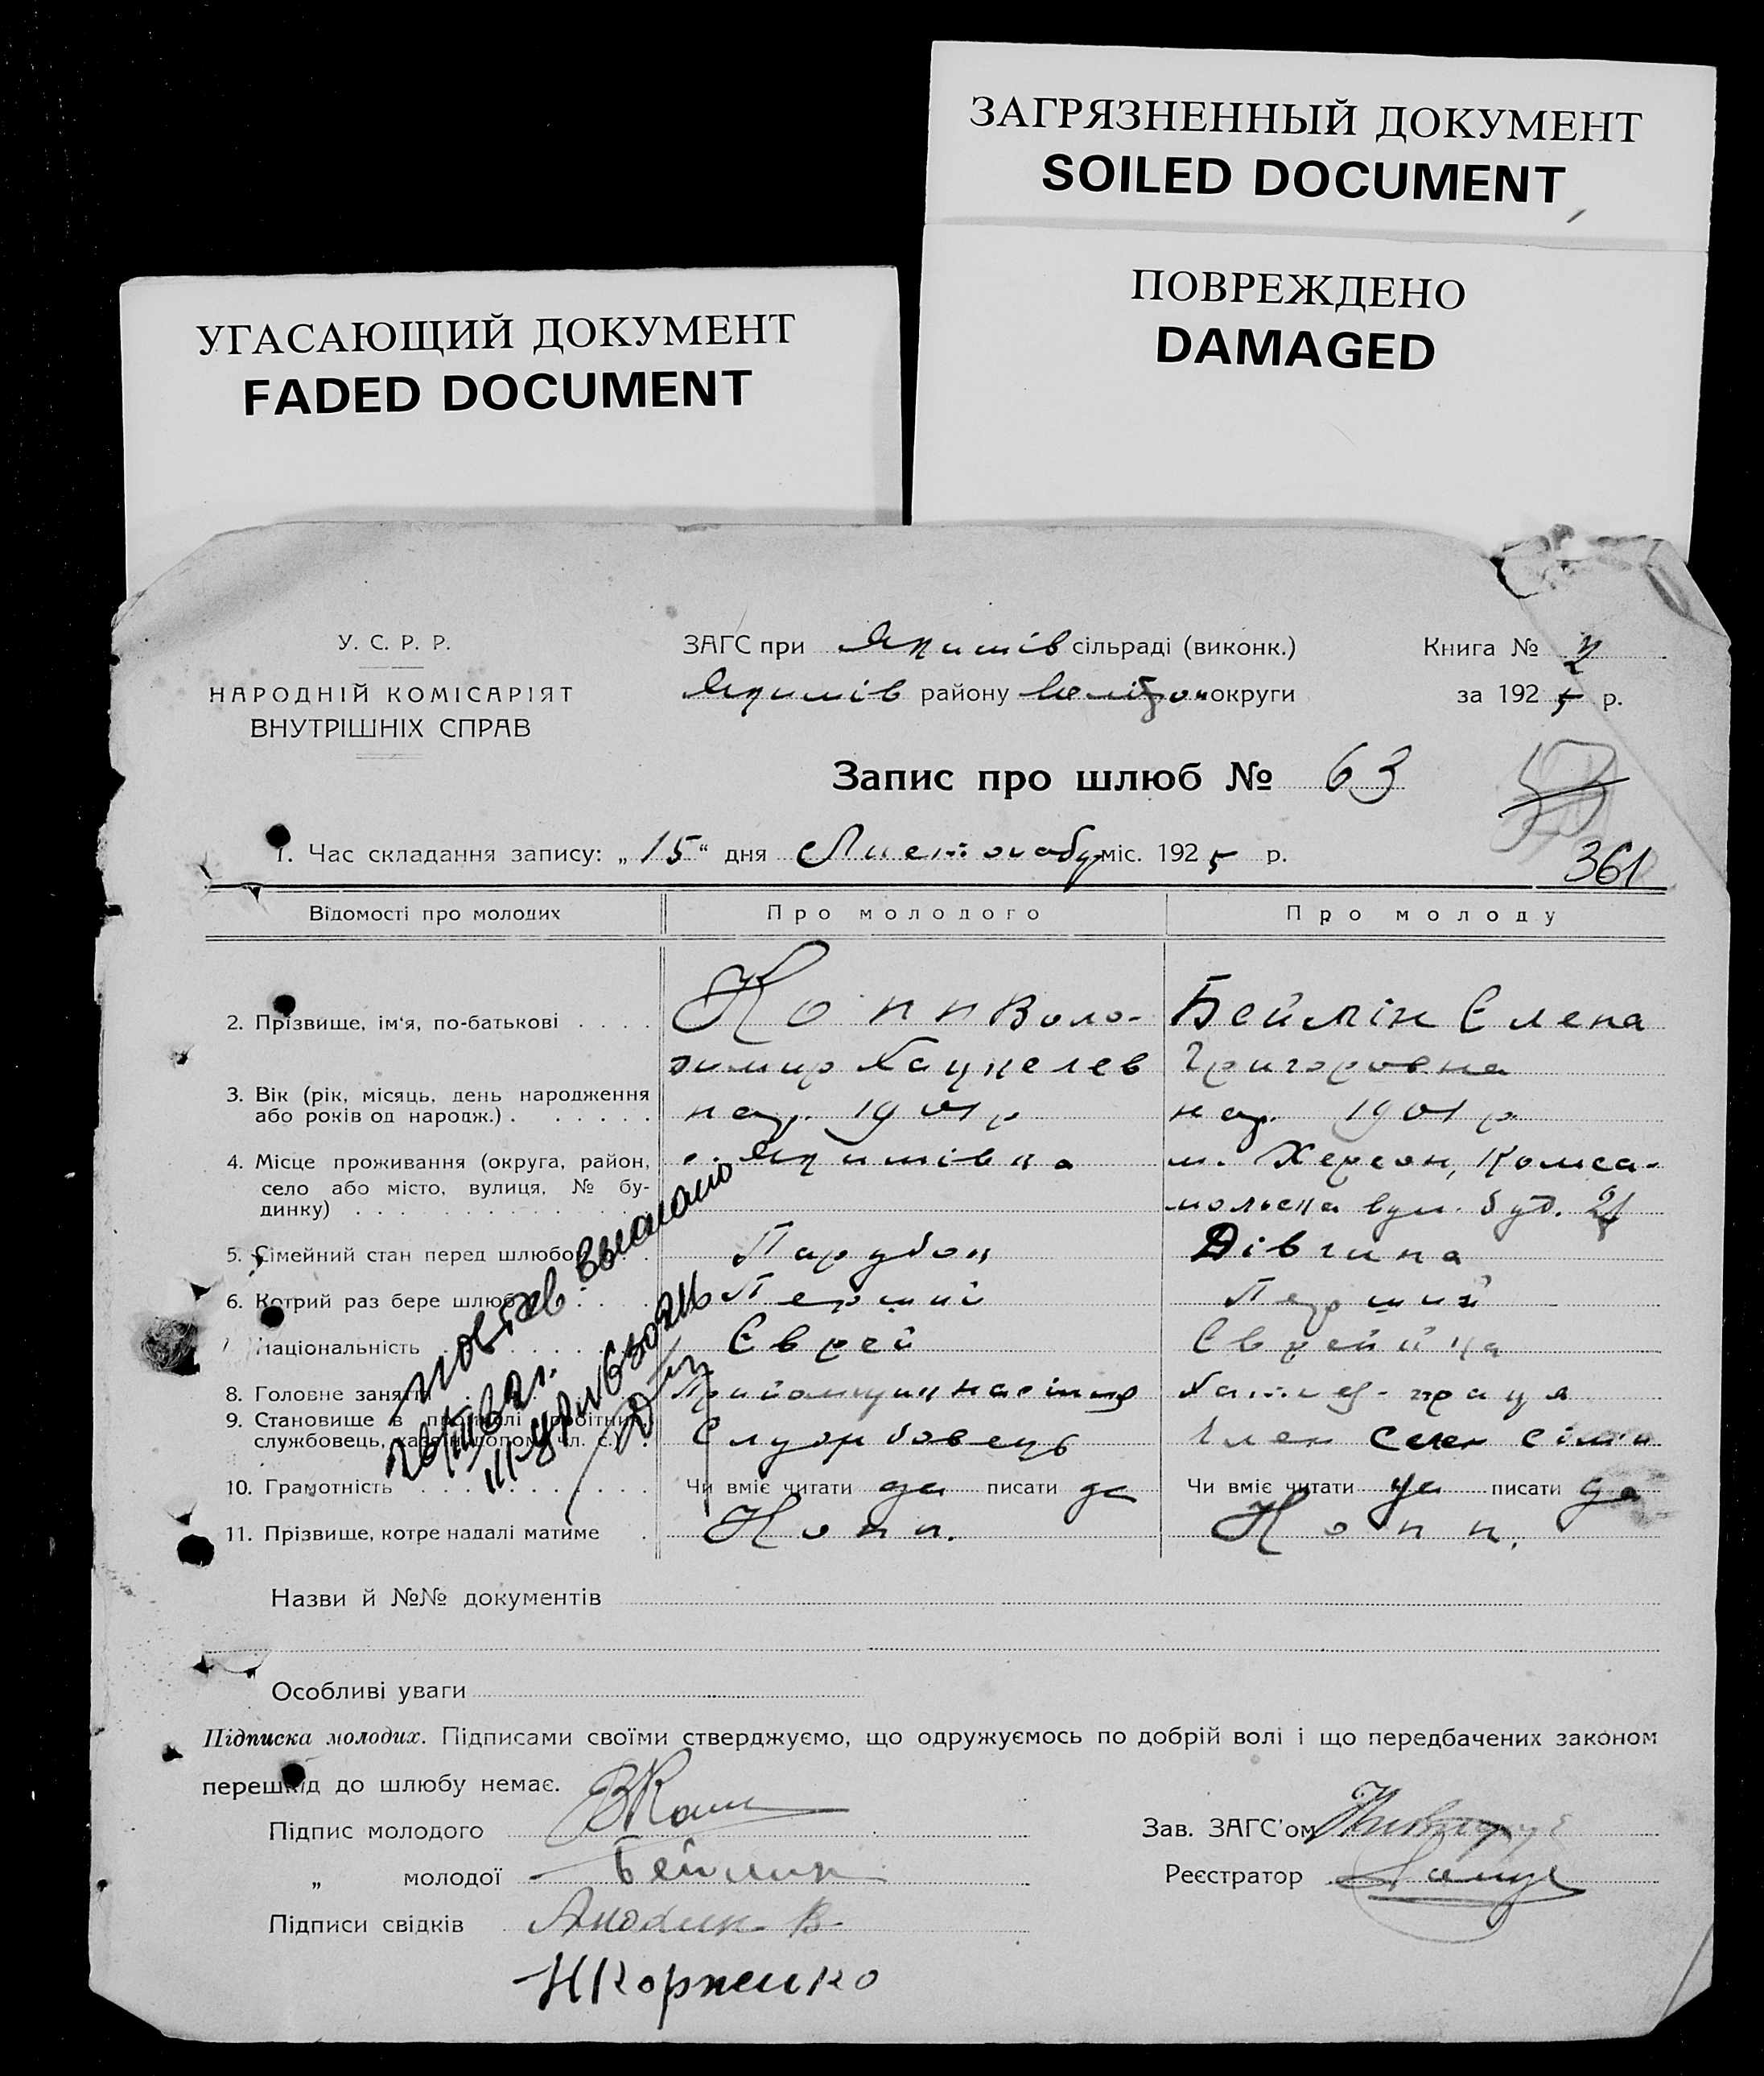 ЗАГРЯЗНЕННЫЙ ДОКУМЕНТ
SOILED DOCUMENT
ПОВРЕЖДЕНО
DAMAGED
УГАСАЮЩИЙ ДОКУМЕНТ
FADED DOCUMENT
У. С. Р. Р.
НАРОДНІЙ КОМІСАРІЯТ
ВНУТРІШНІХ СПРАВ
ЗАГС при Якимів сільраді (виконк.)
Якимів району Меліт округи
Книга № 2
за 1925 р.
Запис про шлюб № 63
53
1. Час складання запису: „15“ дня Листопаду міс. 1925 р.
361
Відомості про молодих Про молодого Про молоду
2. Прізвище, ім'я, по-батькові . . . . Копп Воло- Беймін Єлена
димир Хацкелев Григоровна
3. Вік (рік, місяць, день народження
або років од народж.) . . . . . . нар. 1901 р нар. 1901 р
4. Місце проживання (округа, район, с. Якимівка м. Херсон, Комса-
село або місто, вулиця, № бу-
динку) . . . . . . . . . . . . мольська вул. буд. 21
5. Сімейний стан перед шлюбом . . Парубок Дівчина
6. Котрий раз бере шлюб . . . . Перший Перший
7. Національність . . . . . . . Єврей Єврейка
8. Головне заняття Хатня-праця
9. Становище в промислі (робітник,
службовець, хазяїн, допом. чл. с.) . Службовець Член сім'и
10. Грамотність . . . . . . . . . Чи вміє читати да писати да Чи вміє читати да писати да
11. Прізвище, котре надалі матиме . Копп. Копп.
Назви й №№ документів
Особливі уваги
Підписка молодих. Підписами своїми стверджуємо, що одружуємось по добрій волі і що передбачених законом
перешкід до шлюбу немає.
Підпис молодого ВКопп
„ молодої Беймин
Підписи свідків
НКорненко
Зав. ЗАГС'ом
Реєстратор